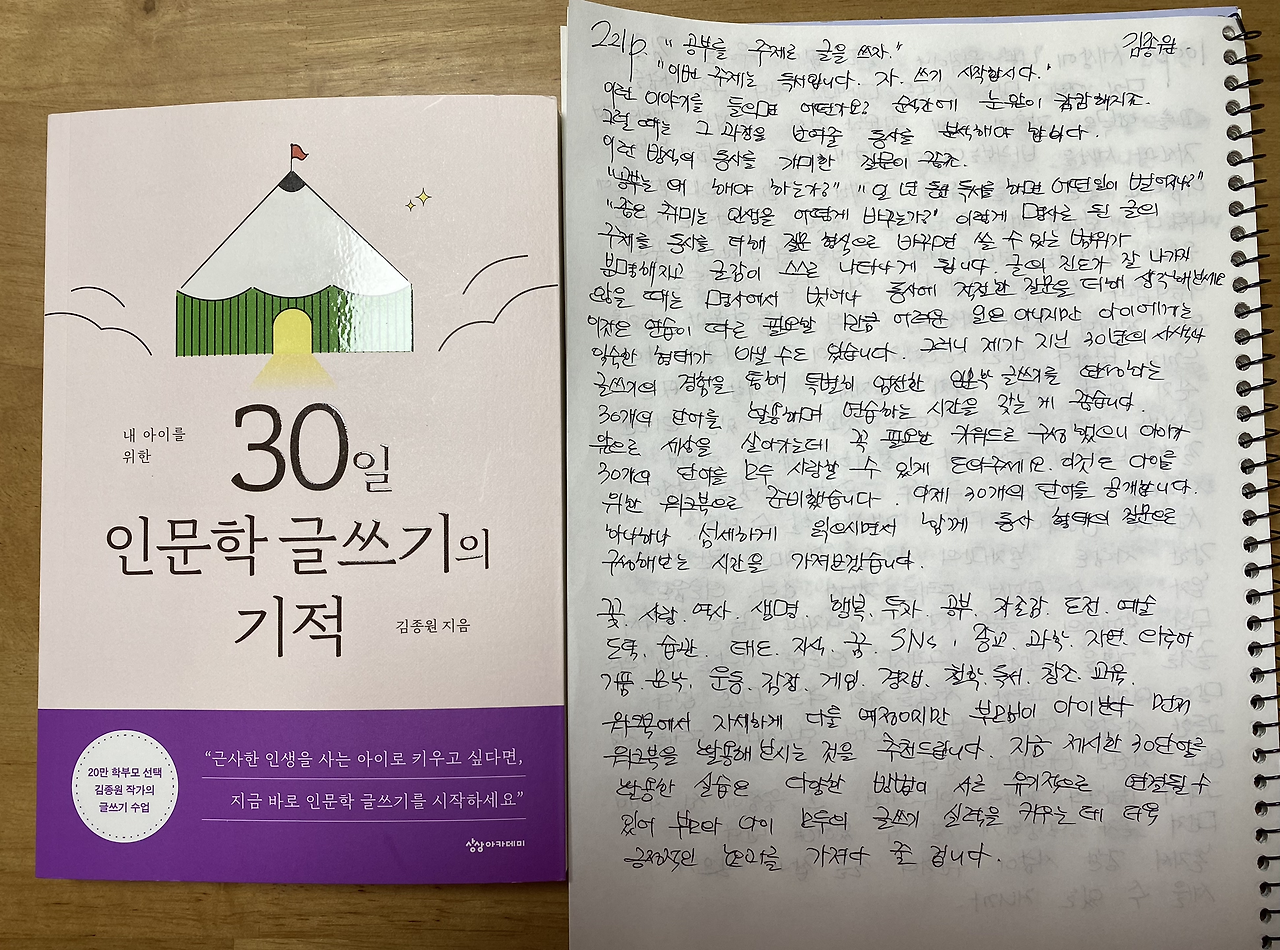 내 아이를
위한
30일
인문학 글쓰기의
기적
김종원 지음
20만 학부모 선택
김종원 작가의
글쓰기 수업
“근사한 인생을 사는 아이로 키우고 싶다면,
지금 바로 인문학 글쓰기를 시작하세요”
상상아카데미
221p. "공부를 주제로 글을 쓰자." 김종원
"이번 주제는 독서입니다. 자. 쓰기 시작합시다."
이런 이야기를 들으면 어떤가요? 순식간에 눈앞이 캄캄해지죠.
그럴 때는 그 과정을 보여줄 동사를 분석해야 합니다.
이런 방식의 동사를 가미한 질문이 좋죠.
"공부는 왜 해야 하는가?" "일 년 동안 독서를 하면 어떤 일이 벌어지나?"
"좋은 취미는 인생을 어떻게 바꾸는가?" 이렇게 명사로 된 글의
주제를 동사를 더해 질문 형식으로 바꾸면 쓸 수 있는 범위가
분명해지고 글감이 스스로 나타나게 됩니다. 글의 진도가 잘 나가지
않을 때는 명사에서 벗어나 동사에 적절한 질문을 더해 생각해보세요
이것은 연습이 따로 필요할 만큼 어려운 일은 아니지만 아이에게는
익숙한 형태가 아닐 수도 있습니다. 그러니 제가 지난 30년의 사색과
글쓰기의 경험을 통해 특별히 엄선한 인문학 글쓰기를 연습하는
30개의 단어를 활용해며 연습하는 시간을 갖는 게 좋습니다.
앞으로 세상을 살아가는데 꼭 필요한 키워드로 구성했으니 아이가
30개의 단어를 모두 사랑할 수 있게 도와주세요. 이것도 아이를
위한 워크북으로 준비했습니다. 이제 30개의 단어를 공개합니다.
하나하나 섬세하게 읽으시면서 함께 동사 형태의 질문으로
구성해보는 시간을 가져보겠습니다.
꽃. 사랑. 역사. 생명. 행복. 투자. 공부. 자존감. 도전. 예술
도덕. 습관. 태도. 지식. 꿈. SNS, 종교. 과학. 자연. 이루어
기쁨. 운동. 감정. 게임. 경쟁. 철학. 독서. 창조. 교육.
워크북에서 자세하게 다룰 예정이지만 부모님이 아이보다 먼저
워크북을 활용해 보시는 것을 추천드립니다. 지금 제시한 30단어를
활용한 실습은 다양한 방법이 서로 유기적으로 연결될 수
있어 부모와 아이 모두의 글쓰기 실력을 키우는 데 더욱
긍정적인 효과를 가져다 줄 겁니다.